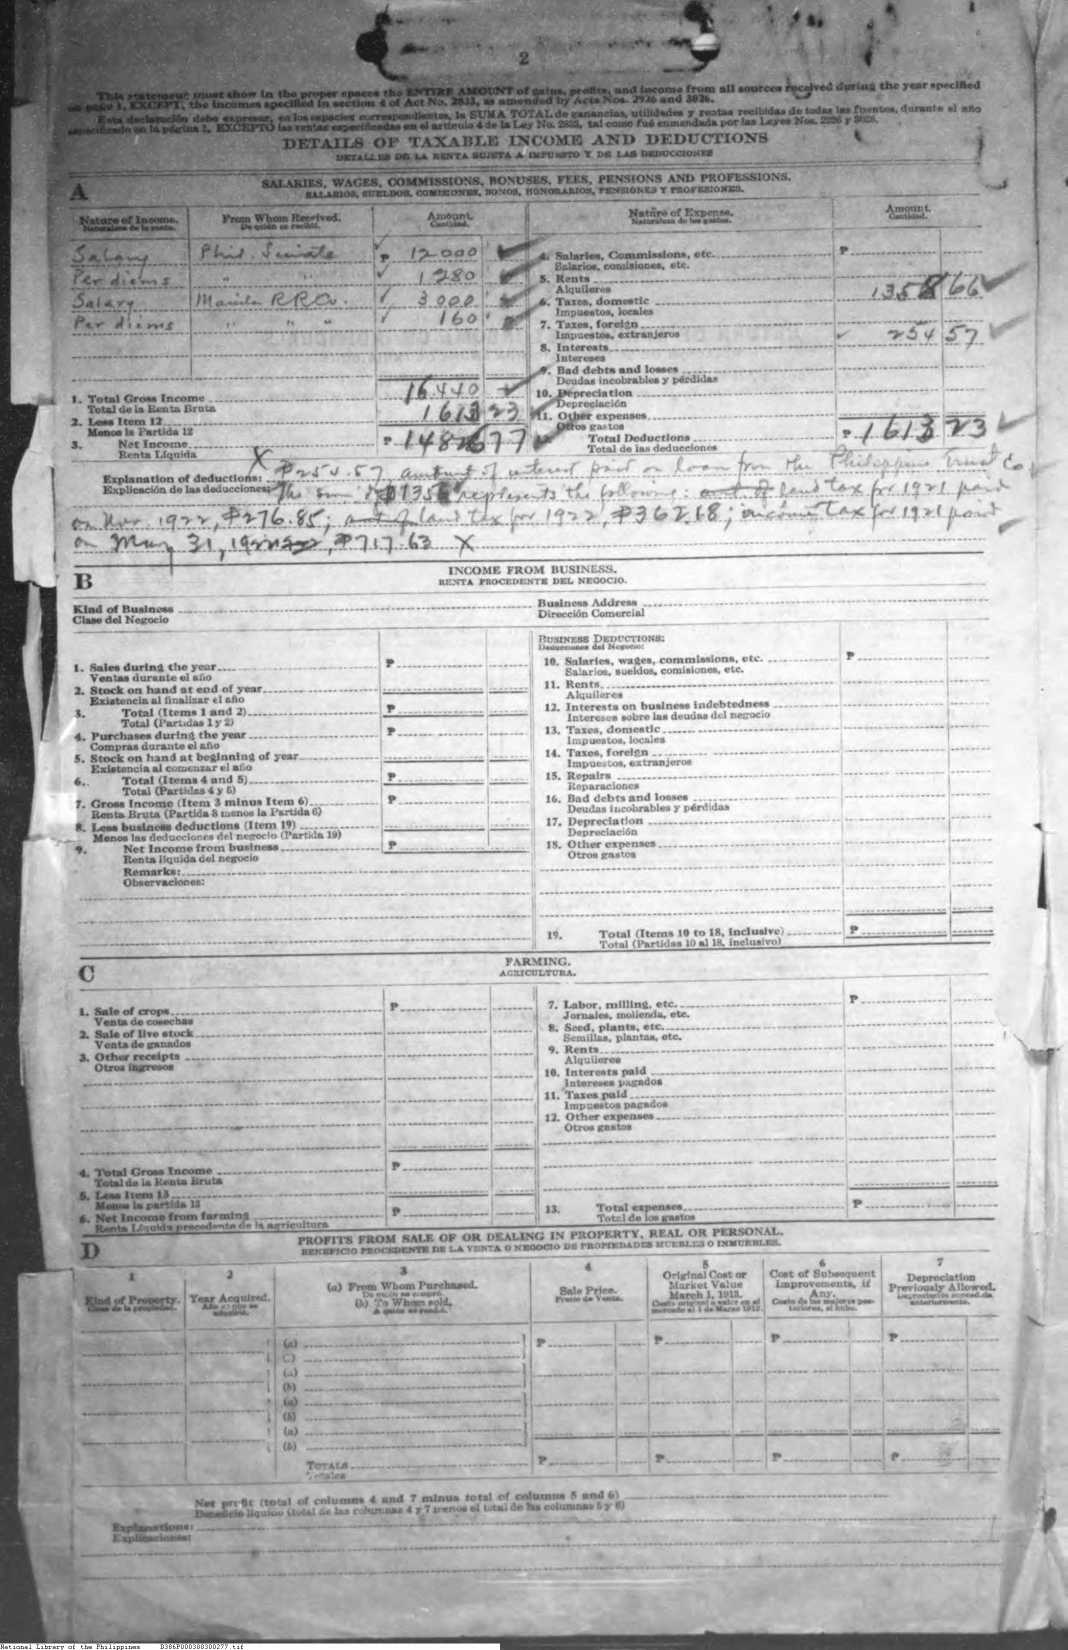 2
This statement must show in the proper spaces the ENTIRE AMOUNT of gains, profits, and income from all sources received during the year specified
on page 1, EXCEPT, the incomes specified in section 4 of Act No. 2833, as amended by Acts Nos. 2926 and 3026.
Esta declaración debe expresar, en los espacios correspondientes, la SUMA TOTAL de ganancias, utilidades y rentas recibidas de todas las fuentes, durante el año
especificado en la página 1, EXCEPTO las rentas especificadas en el artículo 4 de la Ley No. 2833, tal como fué enmendada por las Leyes Nos. 2926 y 3026.
DETAILS OF TAXABLE INCOME AND DEDUCTIONS
DETALLES DE LA RENTA SUJETA A IMPUESTO Y DE LAS DEDUCCIONES
A
SALARIES, WAGES, COMMISSIONS, BONUSES, FEES, PENSIONS AND PROFESSIONS.
SALARIOS, SUELDOS, COMISIONES, BONOS, HONORARIOS, PENSIONES Y PROFESIONES.
Nature of Income. From Whom Received. Amount.
Naturaleza de la renta. De quién se recibió. Cantidad.
Salary Phil. Senate ₱ 12000
Per diems " " 1280
Salary Manila R R Co. 3000
Per diems " " " 160
1. Total Gross Income 16.440
Total de la Renta Bruta
2. Less Item 12 1613 23
Menos la Partida 12
3. Net Income ₱ 14826 77
Renta Líquida
Nature of Expense. Amount.
Naturaleza de los gastos. Cantidad.
4. Salaries, Commissions, etc. ₱
Salarios, comisiones, etc.
5. Rents
Alquileres
6. Taxes, domestic 1358 66
Impuestos, locales
7. Taxes, foreign
Impuestos, extranjeros
8. Interests 254 57
Intereses
9. Bad debts and losses
Deudas incobrables y pérdidas
10. Depreciation
Depreciación
11. Other expenses
Otros gastos
Total Deductions ₱ 1613 23
Total de las deducciones
Explanation of deductions: X ₱254.57 amount of interest paid on loan from the Philippine Trust Co
Explicación de las deducciones: The sum of ₱1356 represents the following: amt. of land tax for 1921 paid
on Nov. 1922, ₱276.85; amt of land tax for 1922, ₱362.18; income tax for 1921 paid
on May 31, 1922, ₱717.63 X
B
INCOME FROM BUSINESS.
RENTA PROCEDENTE DEL NEGOCIO.
Kind of Business
Clase del Negocio
Business Address
Dirección Comercial
1. Sales during the year ₱
Ventas durante el año
2. Stock on hand at end of year
Existencia al finalizar el año
3. Total (Items 1 and 2) ₱
Total (Partidas 1 y 2)
4. Purchases during the year ₱
Compras durante el año
5. Stock on hand at beginning of year
Existencia al comenzar el año
6. Total (Items 4 and 5) ₱
Total (Partidas 4 y 5)
7. Gross Income (Item 3 minus Item 6) ₱
Renta Bruta (Partida 3 menos la Partida 6)
8. Less business deductions (Item 19)
Menos las deducciones del negocio (Partida 19)
9. Net Income from business ₱
Renta líquida del negocio
Remarks:
Observaciones:
BUSINESS DEDUCTIONS:
Deducciones del Negocio:
10. Salaries, wages, commissions, etc. ₱
Salarios, sueldos, comisiones, etc.
11. Rents
Alquileres
12. Interests on business indebtedness
Intereses sobre las deudas del negocio
13. Taxes, domestic
Impuestos, locales
14. Taxes, foreign
Impuestos, extranjeros
15. Repairs
Reparaciones
16. Bad debts and losses
Deudas incobrables y pérdidas
17. Depreciation
Depreciación
18. Other expenses
Otros gastos
19. Total (Items 10 to 18, inclusive) ₱
Total (Partidas 10 al 18, inclusivo)
C
FARMING.
AGRICULTURA.
1. Sale of crops ₱
Venta de cosechas
2. Sale of live stock
Venta de ganados
3. Other receipts
Otros ingresos
4. Total Gross Income ₱
Total de la Renta Bruta
5. Less Item 13
Menos la partida 13
6. Net Income from farming ₱
Renta Líquida procedente de la agricultura
7. Labor, milling, etc. ₱
Jornales, molienda, etc.
8. Seed, plants, etc.
Semillas, plantas, etc.
9. Rents
Alquileres
10. Interests paid
Intereses pagados
11. Taxes paid
Impuestos pagados
12. Other expenses
Otros gastos
13. Total expenses ₱
Total de los gastos
D
PROFITS FROM SALE OF OR DEALING IN PROPERTY, REAL OR PERSONAL.
BENEFICIO PROCEDENTE DE LA VENTA O NEGOCIO DE PROPIEDADES MUEBLES O INMUEBLES.
1 2 3 4 5 6 7
Kind of Property.
Clase de la propiedad.
Year Acquired.
Año en que se adquirió.
(a) From Whom Purchased.
De quién se compró.
(b) To Whom sold.
A quién se vendió.
Sale Price.
Precio de Venta.
Original Cost or
Market Value
March 1, 1913.
Costo original o valor en el
mercado al 1 de Marzo 1913.
Cost of Subsequent
Improvements, if
Any.
Costo de las mejoras pos-
teriores, si hubo.
Depreciation
Previously Allowed.
(a) ₱ ₱ ₱ ₱
(b)
(a)
(b)
(a)
(b)
(a)
(b)
TOTALS ₱ ₱ ₱ ₱
Totales
Net profit (total of columns 4 and 7 minus total of columns 5 and 6)
Beneficio líquido (total de las columnas 4 y 7 menos el total de las columnas 5 y 6)
Explanations:
Explicaciones:
National Library of the Philippines B386P000300300277.tif